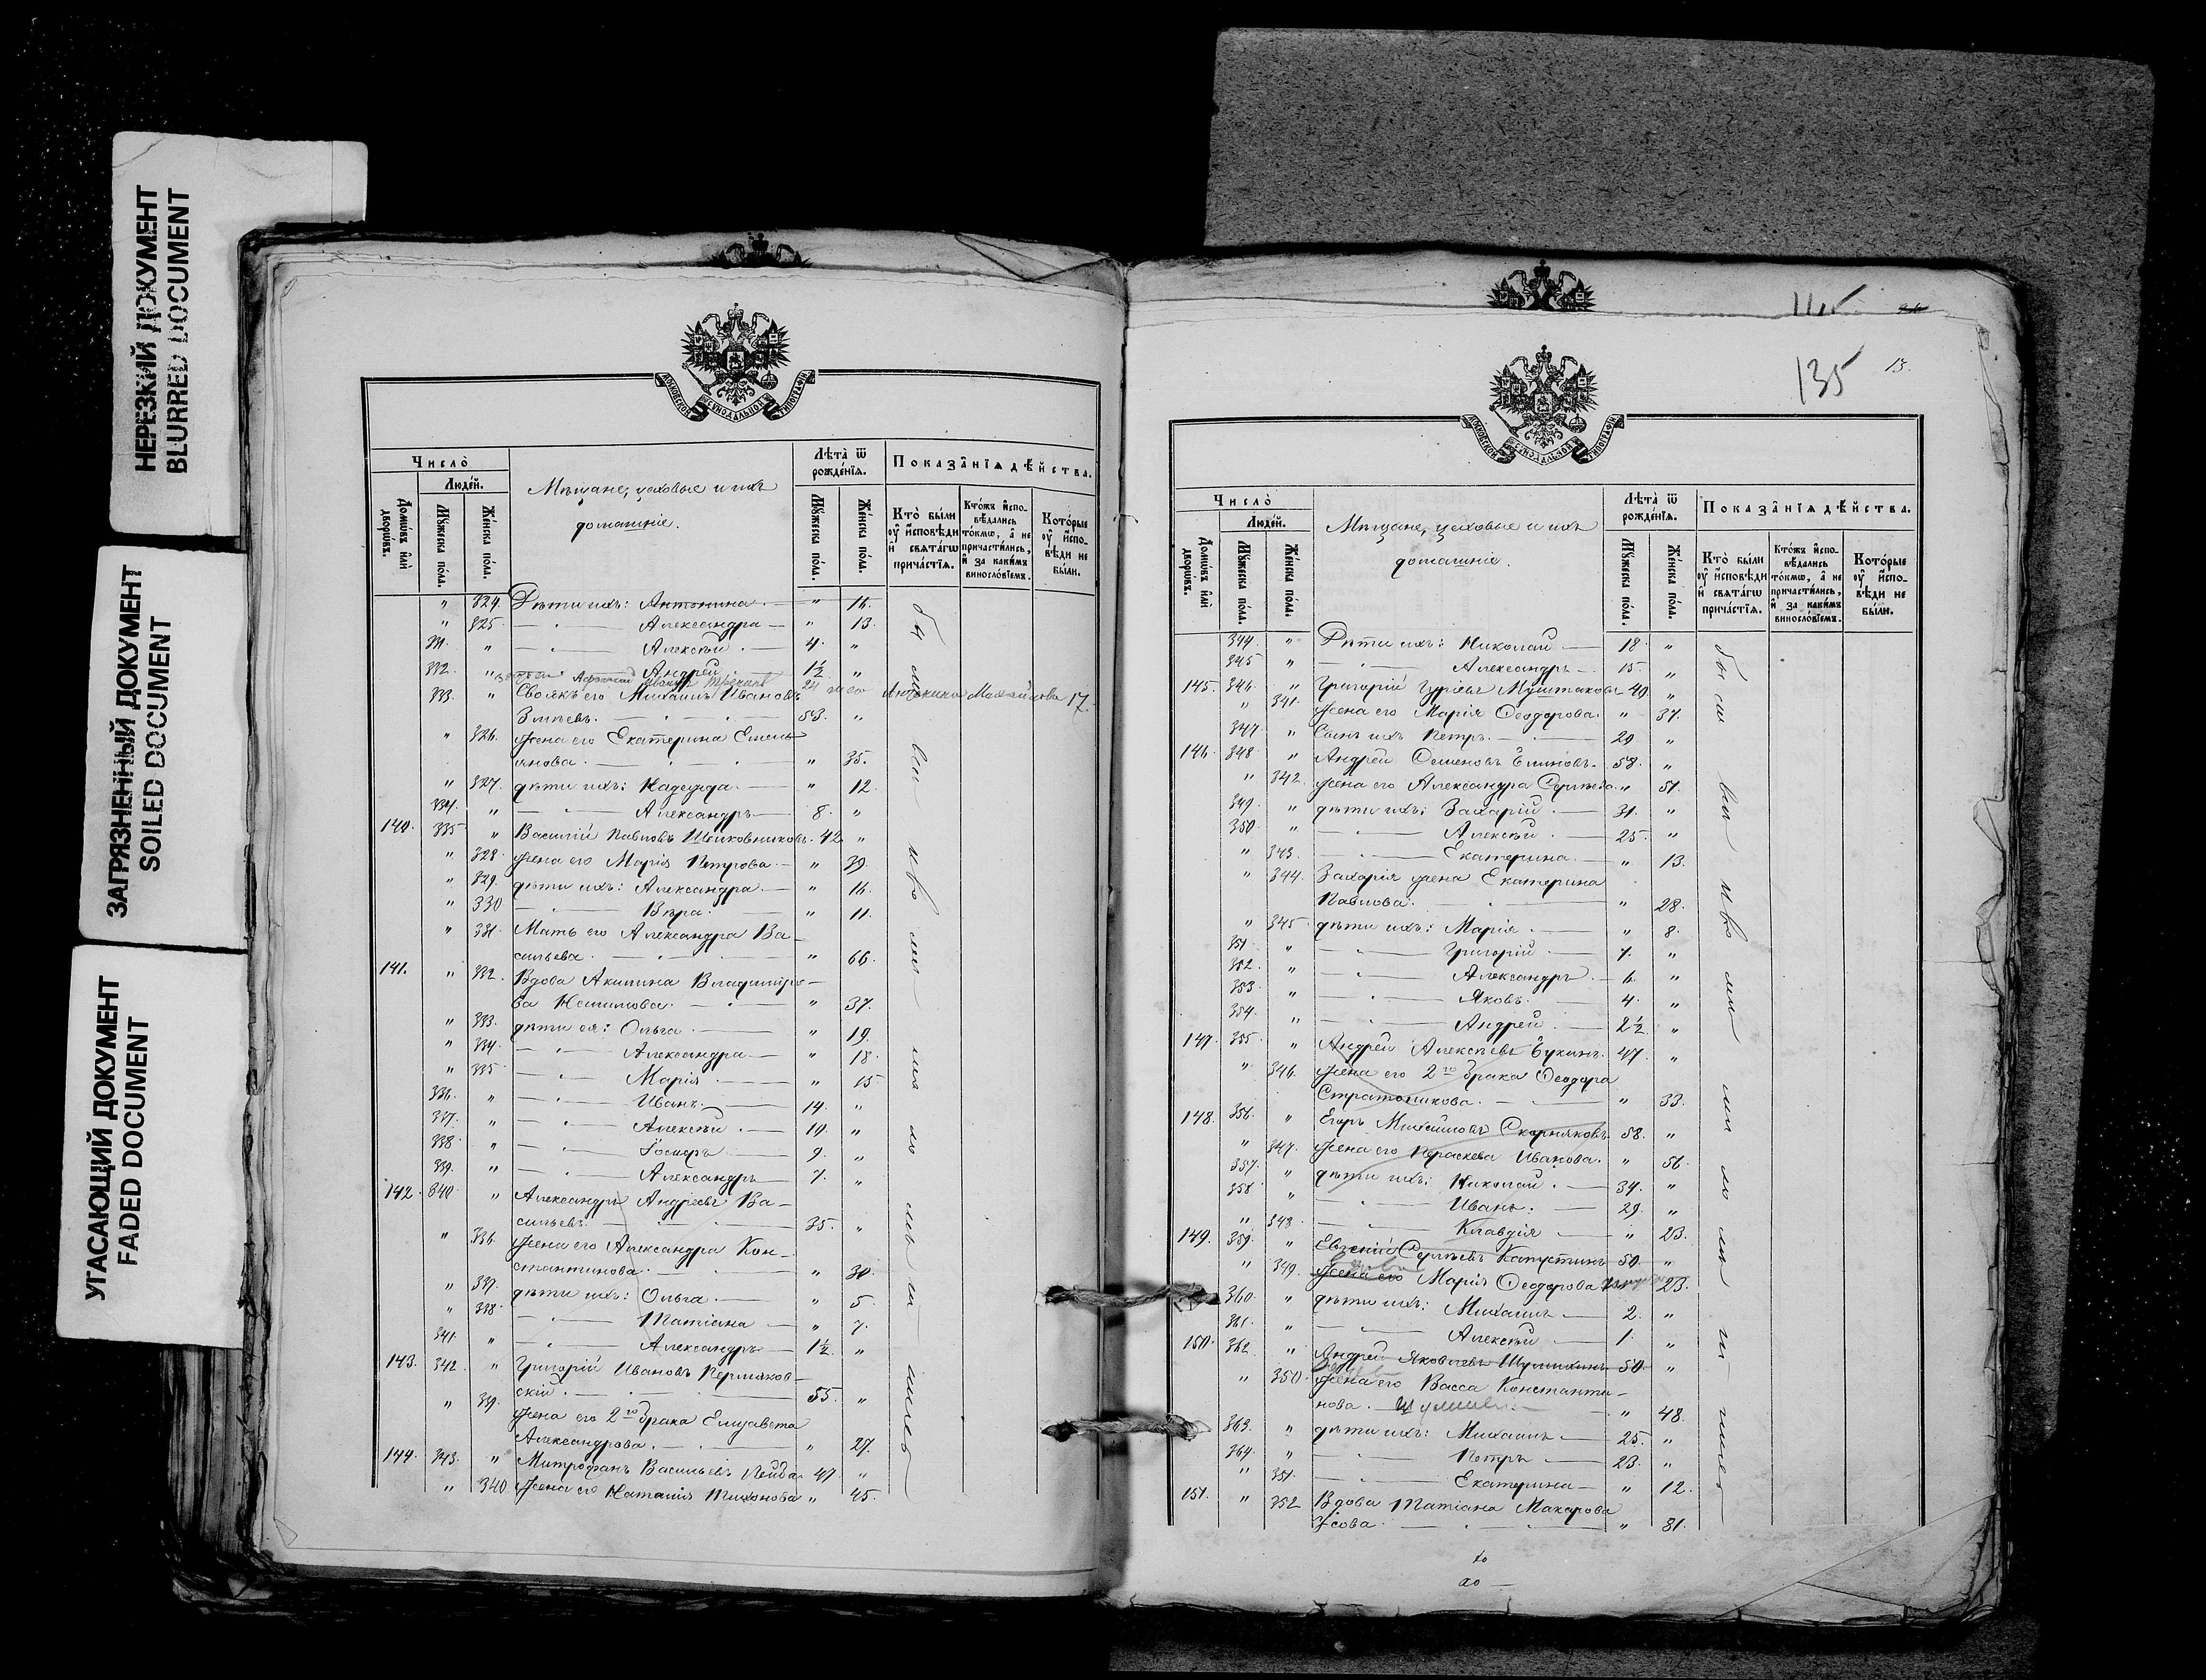 НЕРЕЗКИЙ ДОКУМЕНТ
BLURRED DOCUMENT
ЗАГРЯЗНЕННЫЙ ДОКУМЕНТ
SOILED DOCUMENT
УГАСАЮЩИЙ ДОКУМЕНТ
FADED DOCUMENT
МОСКОВСКОЙ СѴНОДАЛЬНОЙ ТИПОГРАФІИ
Число̀
Люде́й.
Домѡ́въ и҆лѝ дворѡ́въ.
Мꙋ́жеска по́ла.
Же́нска по́ла.
Мѣщане, цеховые и ихъ
домашніе.
Лѣта̀ ѿ рожде́нїѧ.
Мꙋ́жеска по́ла.
Же́нска по́ла.
Показа̂нїѧ дѣ́йства.
Кто̀ бы́ли оу҆ и҆сповѣ́ди и҆ свѧта́гѡ прича́стїѧ.
Кто́жъ и҆спо- вѣ́дались то́кмѡ, а҆ не причасти́лись, и҆ за каки́мъ винослѡ́вїемъ.
Кото́рые оу҆ и҆спо- вѣ́ди не бы́ли.
" 324. Дѣти ихъ: Антонина " 16.
" 325. Александра " 13.
331. " Алексѣй 4. "
332. " Андрей 1½ "
333. " Своякъ его Михаилъ Ивановъ
53. "
" 326. Жена его Екатерина Емель
янова " 35.
" 327. дѣти ихъ: Надежда " 12.
334. " Александръ 8. "
140. 335 " Василій Павловъ 42 "
" 328. Жена его Марія Петрова " 39.
" 329. дѣти ихъ: Александра " 16.
" 330 Вѣра " 11.
" 331. Мать его Александра Ва-
сильева " 66.
141. " 332. Вдова Акилина Владиміро-
ва " 37.
" 333. дѣти ея: Ольга " 19.
" 334. Александра " 18.
" 335 Марія " 15
336. " Иванъ 14. "
337. " Алексѣй "
338. " 9. "
339. " Александръ 7. "
142. 340. " Александръ Андреевъ Ва-
сильевъ 35. "
" 336. Жена его Александра Кон-
стантинова " 30.
" 337. дѣти ихъ: Ольга " 5.
" 338. Татіана " 7.
341. " Александръ 1½ "
143. 342. " Григорій Ивановъ
скій 55. "
" 339. Жена его 2го брака Елизавета
Александрова " 27.
144. 343. " Митрофанъ Васильевъ 47. "
" 340 Жена его Наталія Тихонова " 45.
135
13.
МОСКОВСКОЙ СѴНОДАЛЬНОЙ ТИПОГРАФІИ
Число̀
Люде́й.
Домѡ́въ и҆лѝ дворѡ́въ.
Мꙋ́жеска по́ла.
Же́нска по́ла.
Мѣщане, цеховые и ихъ
домашніе.
Лѣта̀ ѿ рожде́нїѧ.
Мꙋ́жеска по́ла.
Же́нска по́ла.
Показа̂нїѧ дѣ́йства.
Кто̀ бы́ли оу҆ и҆сповѣ́ди и҆ свѧта́гѡ прича́стїѧ.
Кто́жъ и҆спо- вѣ́дались то́кмѡ, а҆ не причасти́лись, и҆ за каки́мъ винослѡ́вїемъ.
Кото́рые оу҆ и҆спо- вѣ́ди не бы́ли.
344. " Дѣти ихъ: Николай 18. "
345 " Александръ 15. "
145. 346. " Григорій Гуріевъ Муштаковъ 49. "
" 341. Жена его Марія Ѳеодорова " 37.
347. " Сынъ ихъ Петръ 29 "
146. 348. " Андрей Семеновъ 58. "
" 342. Жена его Александра " 51.
349. " дѣти ихъ: Захарій 31. "
350. " Алексѣй 25. "
" 343. Екатерина " 13.
" 344. Захарія жена Екатерина
Павлова " 28.
" 345 дѣти ихъ: Марія " 8.
351 " Григорій 7. "
352. " Александръ 6. "
353. " Яковъ 4. "
354. " Андрей 2½ "
147. 355. " Андрей Алексѣевъ 47. "
" 346. Жена его 2го брака Ѳеодора
" 33.
148. 356. " Егоръ Михайловъ 58. "
" 347. Жена его Параскева Иванова " 56.
357. " дѣти ихъ: Николай 34. "
358 " Иванъ 29. "
" 348. Клавдія " 23.
149. 359. " Евгеній Сергѣевъ Капустинъ 50. "
" 349. Жена его Марія Ѳеодорова 23.
360. " дѣти ихъ: Михаилъ 2. "
361. " Алексѣй 1. "
150. 362. " Андрей Яковлевъ 50. "
" 350. Жена его Васса Константи-
нова " 48.
363. " дѣти ихъ: Михаилъ 25. "
364. " Петръ 23. "
" 351. Екатерина " 12.
151. " 352 Вдова Татіана Макарова
" 81.